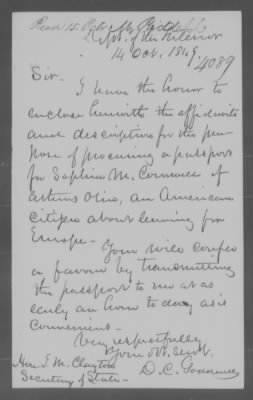 Dept. of the Interior
14 Oct. 1849.
4089
Sir-
I have the honor to
enclose herewith the affidavits
and description for the pur
pose of procuring a passport
for Sophia M. of
Athens Ohio, an American
citizen about leaving for
Europe-
You will confer
a favour by transmitting
the passport to me at as
early an hour to day as is
convenient-
Very respectfully
Your obt. Servt.
D. C.
Hon. J. M. Clayton
Secretary of State-